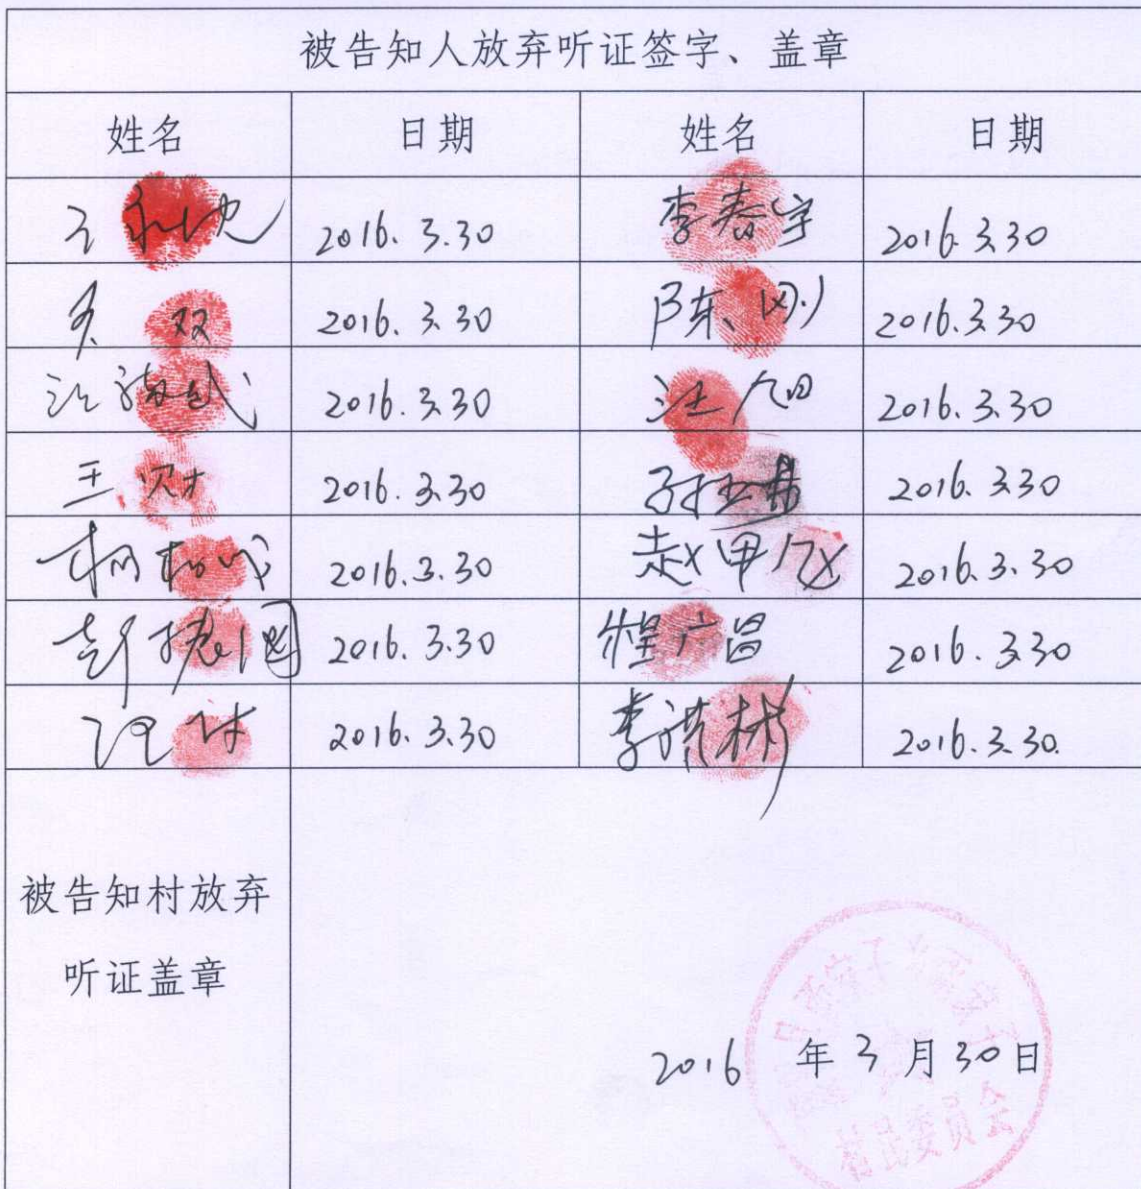 被告知人放弃听证签字、盖章
姓名 日期 姓名 日期
2016.3.30 李春宇 2016.3.30
双 2016.3.30 陈刚 2016.3.30
2016.3.30 汪旭 2016.3.30
王财 2016.3.30 2016.3.30
2016.3.30 赵甲 2016.3.30
彭振国 2016.3.30 程广昌 2016.3.30
2016.3.30 李洪彬 2016.3.30.
被告知村放弃
听证盖章
2016 年 3 月 30 日
村民委员会